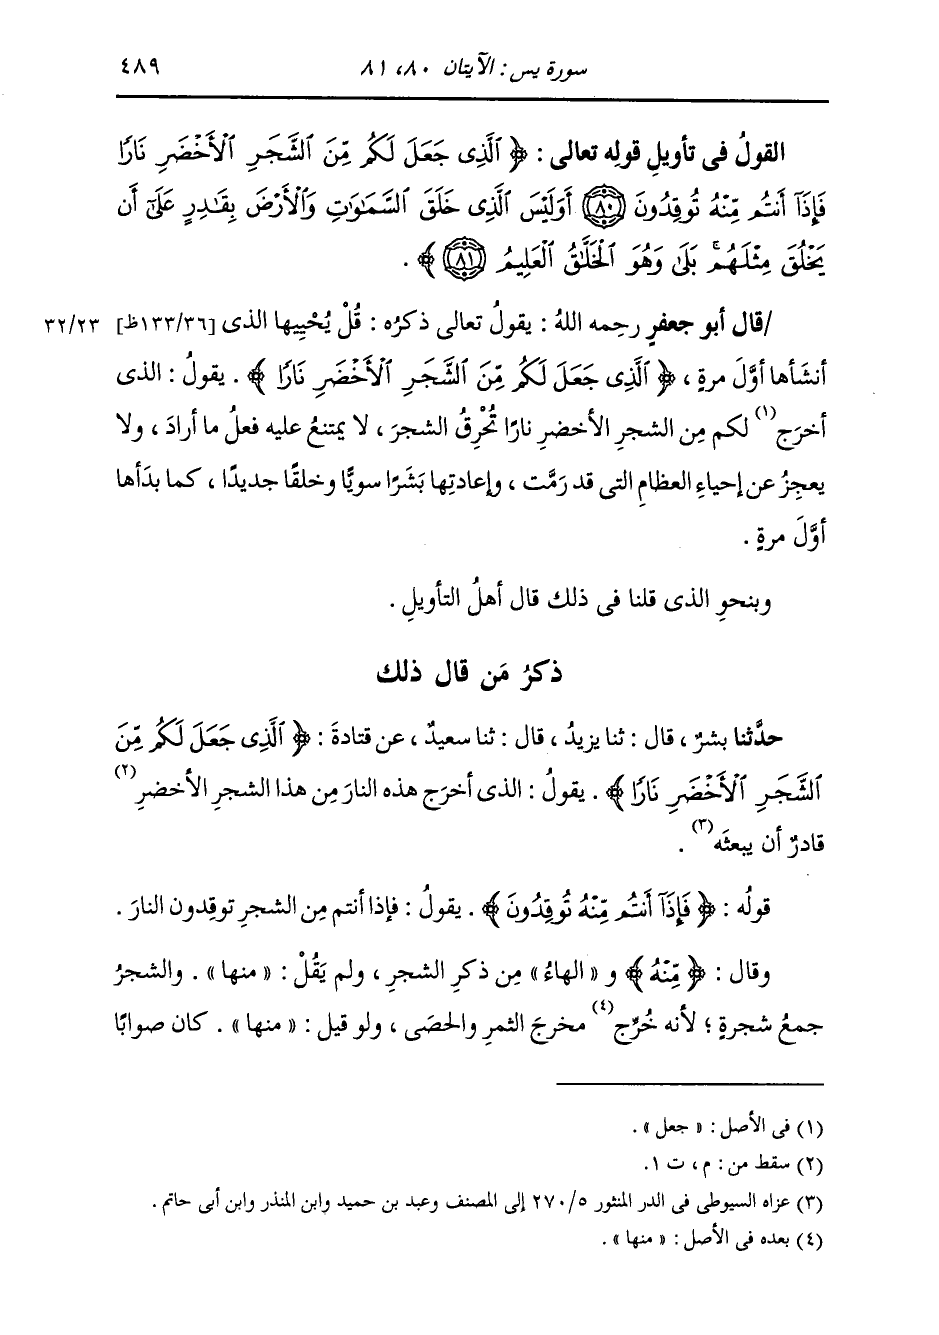 سورة يس : الآيتان ٨٠، ٨١ ٤٨٩
القولُ فى تأويلِ قولِه تعالى : ﴿ ٱلَّذِى جَعَلَ لَكُم مِّنَ ٱلشَّجَرِ ٱلْأَخْضَرِ نَارًا
فَإِذَآ أَنتُم مِّنْهُ تُوقِدُونَ ٨٠ أَوَلَيْسَ ٱلَّذِى خَلَقَ ٱلسَّمَـٰوَٰتِ وَٱلْأَرْضَ بِقَـٰدِرٍ عَلَىٰٓ أَن
يَخْلُقَ مِثْلَهُمۚ بَلَىٰ وَهُوَ ٱلْخَلَّـٰقُ ٱلْعَلِيمُ ٨١ ﴾ .
/قال أبو جعفرٍ رحِمه اللهُ : يقولُ تعالى ذكرُه : قُلْ يُحْيِيها الذى [١٣٣/٣٦ظ] ٣٢/٢٣
أنشَأها أوَّلَ مرةٍ ، ﴿ ٱلَّذِى جَعَلَ لَكُم مِّنَ ٱلشَّجَرِ ٱلْأَخْضَرِ نَارًا ﴾ . يقولُ : الذى
أخرَج(١) لكم مِن الشجرِ الأخضرِ نارًا تُحْرِقُ الشجرَ ، لا يمتنعُ عليه فعلُ ما أرادَ ، ولا
يعجِزُ عن إحياءِ العظامِ التى قد رَمَّت ، وإعادتِها بَشَرًا سويًّا وخلقًا جديدًا ، كما بدَأها
أوَّلَ مرةٍ .
وبنحوِ الذى قلنا فى ذلك قال أهلُ التأويلِ .
ذكرُ مَن قال ذلك
حدَّثنا بشرٌ ، قال : ثنا يزيدُ ، قال : ثنا سعيدٌ ، عن قتادةَ : ﴿ ٱلَّذِى جَعَلَ لَكُم مِّنَ
ٱلشَّجَرِ ٱلْأَخْضَرِ نَارًا ﴾ . يقولُ : الذى أخرَج هذه النارَ مِن هذا الشجرِ الأخضرِ(٢)
قادرٌ أن يبعثَه(٣) .
قولُه : ﴿ فَإِذَآ أَنتُم مِّنْهُ تُوقِدُونَ ﴾ . يقولُ : فإذا أنتم مِن الشجرِ توقِدون النارَ .
وقال : ﴿ مِّنْهُ ﴾ و « الهاءُ » مِن ذكرِ الشجرِ ، ولم يَقُلْ : « منها » . والشجرُ
جمعُ شجرةٍ ؛ لأنه خُرِّج(٤) مخرجَ الثمرِ والحصَى ، ولو قيل : « منها » . كان صوابًا
(١) فى الأصل : « جعل » .
(٢) سقط من : م ، ت ١.
(٣) عزاه السيوطى فى الدر المنثور ٢٧٠/٥ إلى المصنف وعبد بن حميد وابن المنذر وابن أبى حاتم .
(٤) بعده فى الأصل : « منها » .